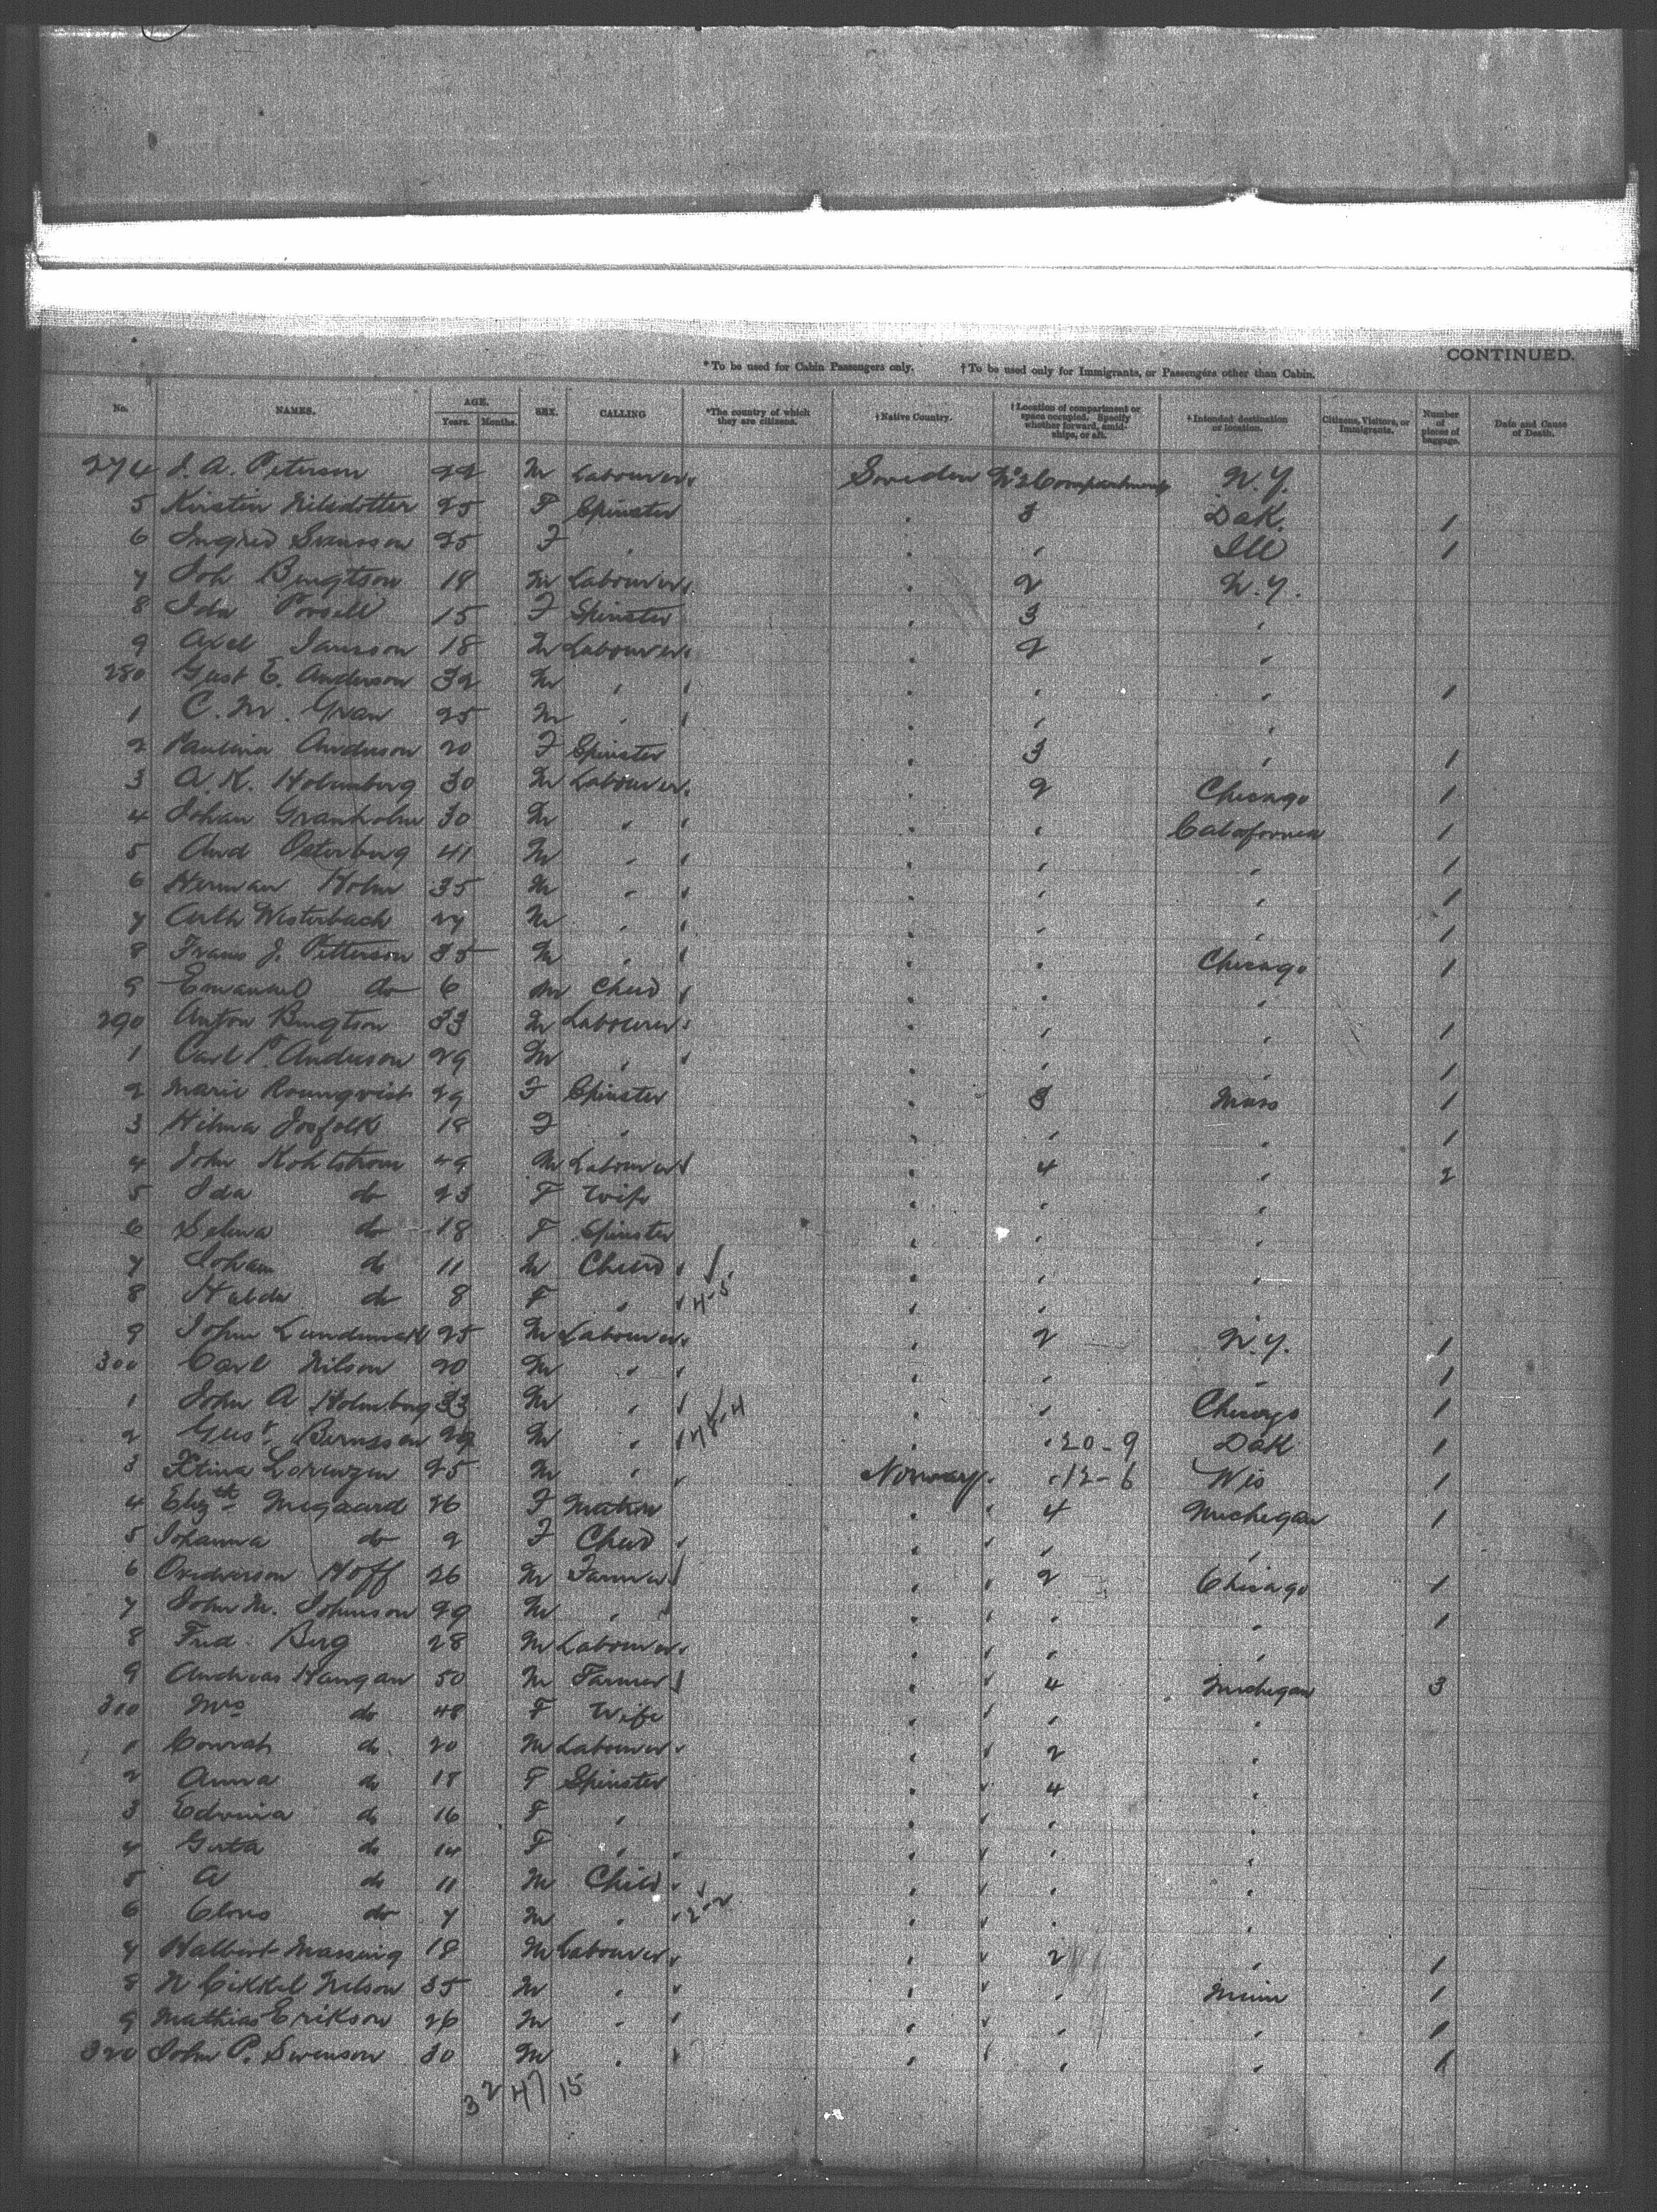 CONTINUED.
*To be used for Cabin Passengers only. †To be used only for Immigrants, or Passengers other than Cabin.
No. NAMES. AGE. Years. Months. SEX. CALLING *The country of which they are citizens. †Native Country. †Location of compartment or space occupied. Specify whether forward, amidships, or aft. †Intended destination or location. Citizens, Visitors, or Immigrants. Number of pieces of baggage. Date and Cause of Death.
274 J. A. Peterson 22 M Labourer Sweden No 2 Compartment N.Y.
5 Kirstin Nilsdotter 25 F Spinster " 3 Dak. 1
6 Ingrid Svensson 25 F " " " Ill 1
7 Joh Bengtson 19 M Labourer " 2 N.Y.
8 Ida 15 F Spinster " 3 "
9 Axel Jansson 18 M Labourer " 2 "
280 Gust E. Anderson 32 M " " " " 1
1 C. M. Gran 25 M " " " "
2 Paulina Anderson 20 F Spinster " 3 " 1
3 A. K. Holmberg 30 M Labourer " 2 Chicago 1
4 Johan Granholm 30 M " " " California 1
5 And Peterberg 41 M " " " " 1
6 Herman Holm 35 M " " " " 1
7 Westerbach 27 M " " " " 1
8 Frans J. Petterson 35 M " " " Chicago 1
9 Emanuel do 6 M Child " " "
290 Anton Bengtson 33 M Labourer " " " 1
1 Carl P. Anderson 29 M " " " " 1
2 Marie Rounqvist 29 F Spinster " 3 Mass 1
3 Hilma Josfolk 18 F " " " " 1
4 John Kohlstrom 49 M Labourer " 4 " 2
5 Ida do 23 F Wife " " "
6 Selma do 18 F Spinster " " "
7 Johan do 11 M Child " " "
8 Hulda do 8 F " 4-5 " " "
9 John Lundmark 25 M Labourer " 2 N.Y. 1
300 Carl Nilson 20 M " " " " 1
1 John A Holmberg 33 M " " " Chicago 1
2 Gust Bernsson 29 M " 48-4 " " 20-9 Dak 1
3 Stina Lorenzen 25 M " Norway " 12-6 Wis 1
4 Elizth Megaard 26 F Matron " 4 Michegan 1
5 Johanna do 2 F Child " " "
6 Hoff 26 M Farmer " 2 Chicago 1
7 John M. Johnson 29 M " " " " 1
8 Fred Berg 28 M Labourer " " "
9 Andreas Haugan 50 M Farmer " 4 Michegan 3
310 Mrs do 48 F Wife " " "
1 Conrah do 20 M Labourer " 2 "
2 Anna do 18 F Spinster " 4 "
3 Edvina do 16 F " " " "
4 Guta do 14 F " " " "
5 A do 11 M Child " " "
6 do 7 M " 2-2 " " "
7 Halbert 18 M Labourer " 2 " 1
8 N Nelson 35 M " " " Minn 1
9 Mathias Erikson 26 M " " " " 1
320 John P. Swenson 30 M " " " " 1
32 47 15